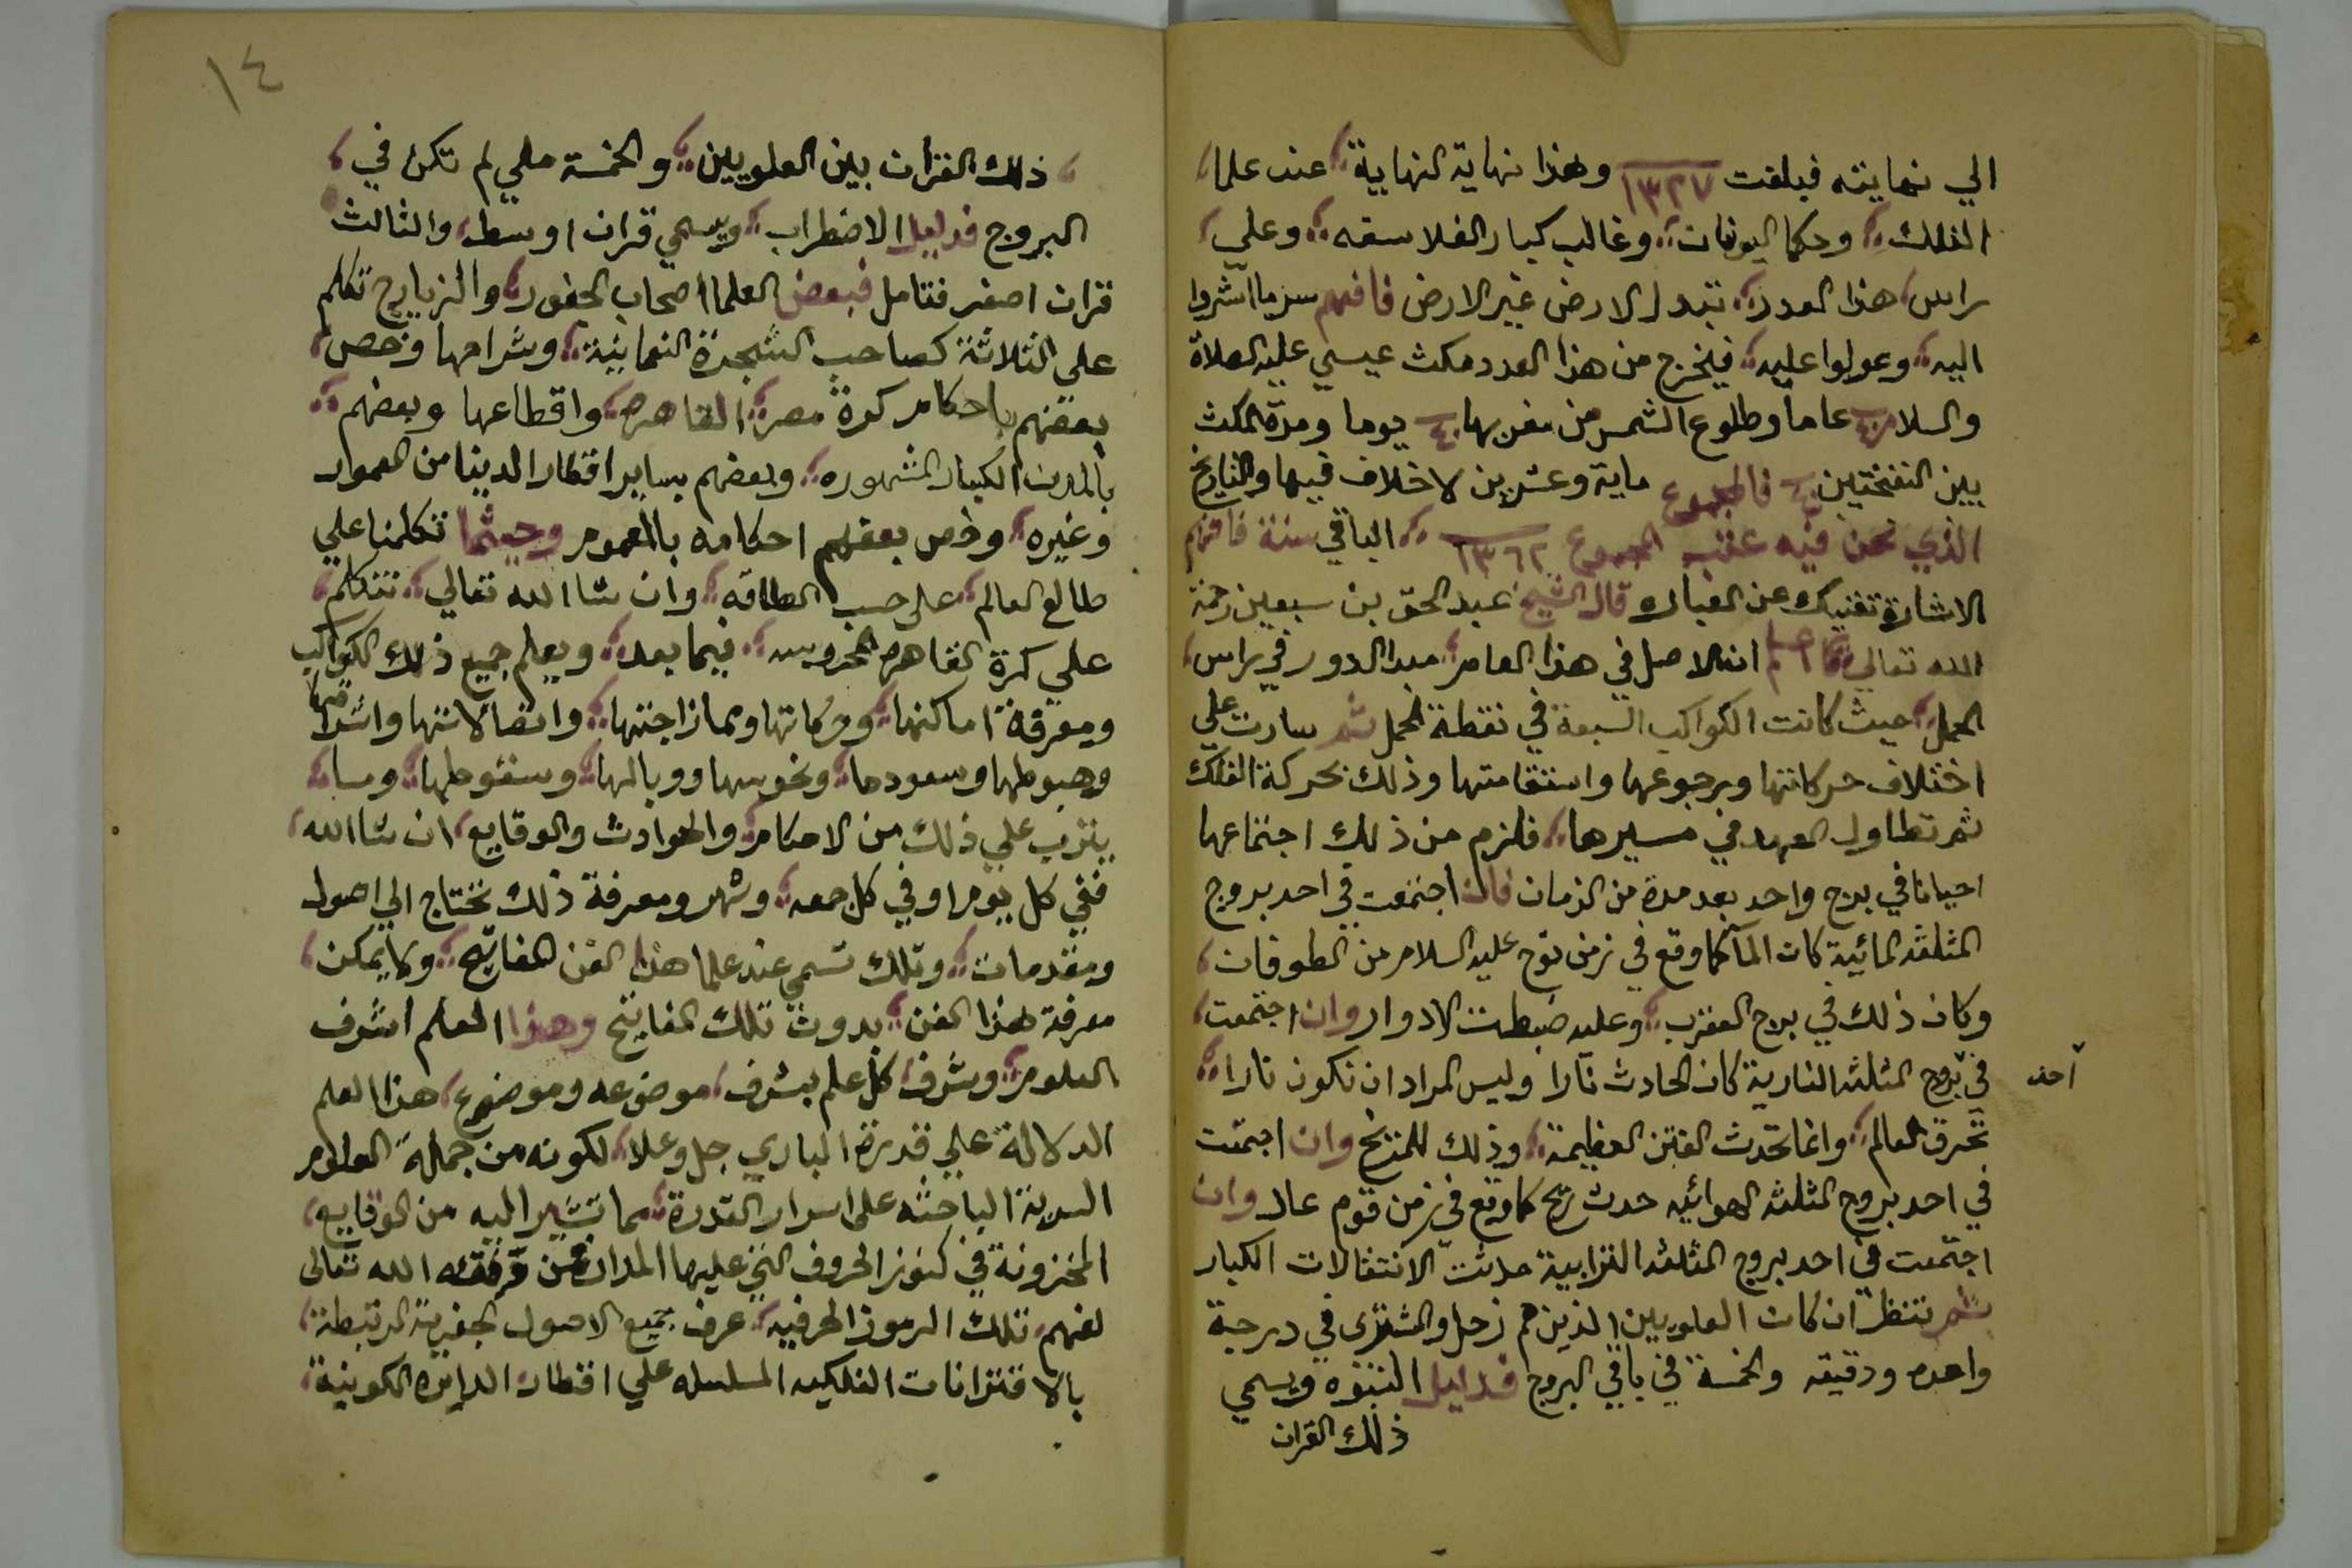 الي نهايته فبلغت ١٣٢٧ وهذا نهاية النهاية عند علما
الفلك وحكما اليونان وغالب كبار الفلاسفه وعلي
راس هذا العدد تبدل الارض غير الارض فافهم سر ما اشروا
اليه وعولوا عليه فيخرج من هذا العدد مكث عيسي عليه الصلاة
والسلام عاما وطلوع الشمس من مغربها يوما ومدة المكث
بين النفختين فالمجموع ماية وعشرين لا خلاف فيها والتاريخ
الذي نحن فيه المجموع ١٣٦٢ الباقي سنة فافهم
الاشارة تغنيك عن العبارة قال الشيخ عبد الحق بن سبعين رحمة
الله تعالي اعلم ان الاصل في هذا العام مبدا الدور في راس
الحمل حيث كانت الكواكب السبعة في نقطة الحمل ثم سارت علي
اختلاف حركاتها ورجوعها واستقامتها وذلك بحركة الفلك
ثم تطاول العهد في مسيرها فلزم من ذلك اجتماعها
احيانا في برج واحد بعد مدة من الزمان فان اجتمعت في احد بروج
المثلثة المائية كان الما كما وقع في زمن نوح عليه السلام من الطوفان
وكان ذلك في برج العقرب وعليه ضبطت الادوار وان اجتمعت
في بروج المثلثه النارية كان الحادث نارا وليس المراد ان تكون نارا
احد
تحرق العالم وانما تحدث الفتن العظيمة وذلك للمريخ وان اجتمعت
في احد بروج المثلثه الهوائيه حدث ريح كما وقع في زمن قوم عاد وان
اجتمعت في احد بروج المثلثه الترابية حدثت الانتقالات الكبار
ثم تنظر ان كان العلويين الذين هم زحل والمشتري في درجة
واحده ودقيقه والخمسة في باقي البروج فدليل النبوه ويسمي
ذلك القران
١٤
ذلك القران بين العلويين والخمسة ملي لم تكن في
البروج فدليل الاضطراب ويسمي قران اوسط والثالث
قران اصغر فتامل فبعض العلما اصحاب الجفور والزيايرج تكلم
علي الثلاثة كصاحب الشجرة النعمانية وشراحها وخص
بعضهم باحكام كورة مصر القاهره واقطاعها وبعضهم
بالمدن الكبار المشهوره وبعضهم بساير اقطار الدينا من المعمور
وغيره وخص بعضهم احكامه بالعموم وحيثما تكلمنا علي
طالع العالم علي حسب الطاقه وان شا الله تعالي نتكلم
علي كرة القاهره المحروسه فيما بعد ويعلم جميع ذلك الكواكب
ومعرفة اماكنها وحركاتها وممازاجتها واتصالاتها واشرافها
وهبوطها وسعودها ونحوسها ووبالها وسقوطها وما
يترتب علي ذلك من الاحكام والحوادث والوقايع ان شا الله
ففي كل يوم او في كل جمعه وشهر ومعرفة ذلك تحتاج الي اصول
ومقدمات وتلك تسمي عند علما هذا الفن المفاتيح ولا يمكن
معرفة هذا الفن بدون تلك المفاتيح وهذا العلم اشرف
العلوم وشرف كل علم بشرف موضوعه وموضوع هذا العلم
الدلالة علي قدرة الباري جل وعلا لكونه من جملة العلوم
السرية الباحثه علي اسرار القدرة مما تشير اليه من الوقايع
المخزونة في كنوز الحروف التي عليها المدار فمن وفقه الله تعالى
لفهم تلك الرموز الحرفيه عرف جميع الاصول الجفرية المرتبطة
بالاقترانات الفلكيه المسلسله علي اقطار الدايره الكونية